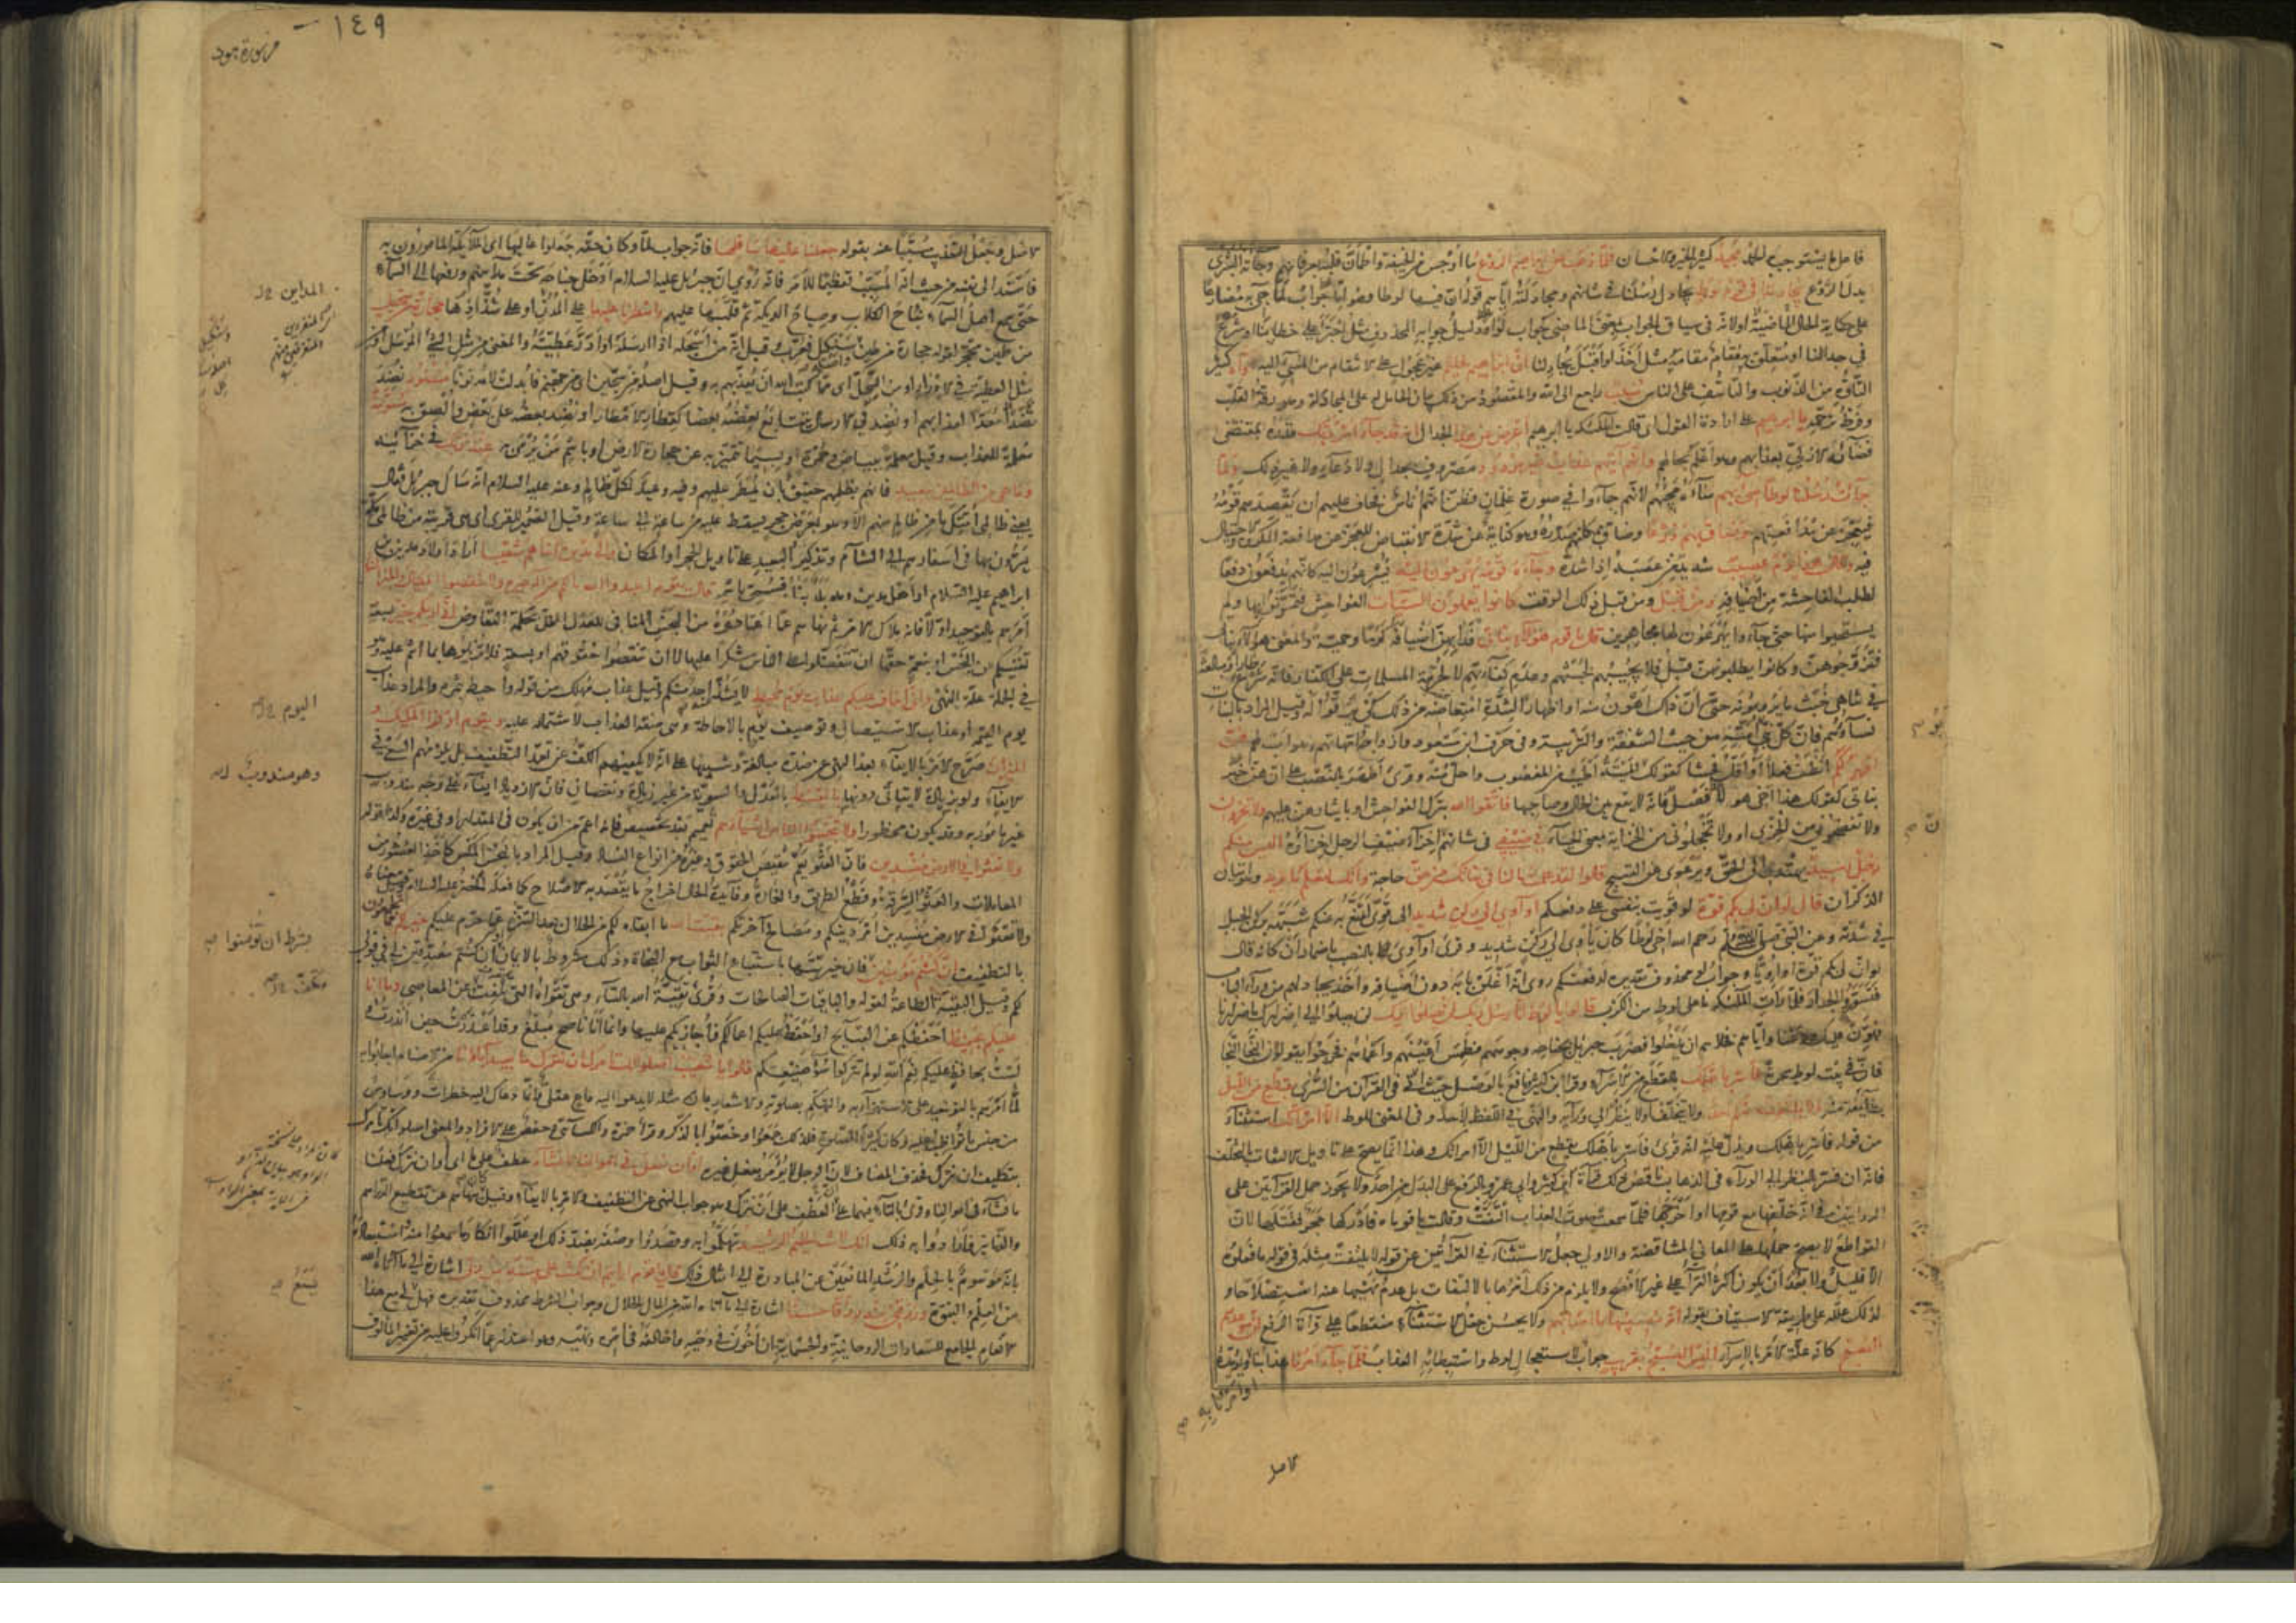 فاعل ما يستوجب به الحمد مجيد كثير الخير والاحسان فلما ذهب عن ابراهيم الروع اى ما اوجس من الخيفة واطمأن قلبه بعرفانهم وجاءته البشرى
بدل الروع يجادلنا في قوم لوط يجادل رسلنا في شانهم ومجادلته اياهم قوله ان فيها لوطا وهو اما جواب لما جئ به مضارعا
على حكاية الحال الماضية او لانه في سياق الجواب بمعنى الماضي كجواب لو او دليل جوابه المحذوف مثل اجترأ على خطابنا او شرع
في جدالنا او متعلق به اقيم مقامه مثل اخذ او اقبل يجادلنا ان ابراهيم لحليم غير عجول على الانتقام من المسئ اليه اواه كثير
التأوه من الذنوب والتأسف على الناس منيب راجع الى الله والمقصود من ذلك بيان الحامل له على المجادلة وهو رقة القلب
وفرط ترحمه يا ابراهيم على ارادة القول اى قالت الملئكة يا ابرهيم اعرض عن هذا الجدال انه قد جاء امر ربك قدره بمقتضى
قضائه الازلي بعذابهم وهو اعلم بحالهم وانهم آتيهم عذاب غير مردود مصروف بجدال ولا دعاء ولا غير ذلك ولما
جاءت رسلنا لوطا سئ بهم ساءه مجيئهم لانهم جاءوا في صورة غلمان فظن انهم اناس فخاف عليهم ان يقصدهم قومه
فيعجز عن مدافعتهم وضاق بهم ذرعا وضاق بمكانهم صدره وهو كناية عن شدة الانقباض للعجز عن مدافعة المكروه والاحتيال
فيه وقال هذا يوم عصيب شديد من عصبه اذا شده وجاءه قومه يهرعون اليه يسرعون اليه كانهم يدفعون دفعا
لطلب الفاحشة من اضيافه ومن قبل ومن قبل ذلك الوقت كانوا يعملون السيئات الفواحش فتمرنوا بها ولم
يستحيوا منها حتى جاءوا يهرعون لها مجاهرين قال يا قوم هؤلاء بناتي فدى بهن اضيافه كرما وحمية والمعنى هؤلاء بناتي
فتزوجوهن وكانوا يطلبونهن قبل فلا يجيبهم لخبثهم وعدم كفاءتهم لا لحرمة المسلمات على الكفار فانه شرع طار او مبالغة
في تناهى خبث ما يرومونه حتى ان ذلك اهون منه او اظهارا لشدة امتعاضه من ذلك كى يرقوا له وقيل المراد بالبنات
نساؤهم فان كل نبي ابو امته من حيث الشفقة والتربية وفي حرف ابن مسعود وازواجه امهاتهم وهو اب لهم هن
اطهر لكم انظف فعلا او اقل فحشا كقولك الميتة اطيب من المغصوب واحل منه وقرئ اطهر بالنصب على ان هن خبر
بناتي كقولك هذا اخي هو لا فصل فانه لا يقع بين الحال وصاحبها فاتقوا الله بترك الفواحش او بايثارهن عليهم ولا تخزون
ولا تفضحوني من الخزي او ولا تخجلوني من الخزاية بمعنى الحياء في ضيفي في شانهم فان اخزاء ضيف الرجل اخزاؤه اليس منكم
رجل رشيد يهتدي الى الحق ويرعوى عن القبيح قالوا لقد علمت ما لنا في بناتك من حق حاجة وانك لتعلم ما نريد وهو اتيان
الذكران قال لو ان لي بكم قوة لو قويت بنفسي على دفعكم او آوى الى ركن شديد الى قوى اتمنع به عنكم شبهه بركن الجبل
في شدته وعن النبي صلى الله عليه وسلم رحم الله اخي لوطا كان يأوى الى ركن شديد وقرئ او آوى بالنصب باضمار ان كانه قال
لو ان لي بكم قوة او اويا وجواب لو محذوف تقديره لدفعتكم روى انه اغلق بابه دون اضيافه واخذ يجادلهم من وراء الباب
فتسوروا الجدار فلما رأت الملئكة ما على لوط من الكرب قالوا يا لوط انا رسل ربك لن يصلوا اليك لن يصلوا الى اضرارك باضرارنا
فهون عليك ودعنا واياهم فخلاهم ان يدخلوا فضرب جبريل بجناحه وجوههم فطمس اعينهم واعماهم فخرجوا يقولون النجا النجا
فان في بيت لوط سحرة فاسر باهلك بالقطع من الاسراء وقرا ابن كثير ونافع بالوصل حيث وقع في القرآن من السرى بقطع من الليل
بطائفة منه ولا يلتفت منكم احد ولا يتخلف او لا ينظر الى ورائه والنهى في اللفظ لاحد وفي المعنى للوط الا امرأتك استثناء
من قوله فأسر باهلك ويدل عليه انه قرئ فاسر باهلك بقطع من الليل الا امراتك وهذا انما يصح على تاويل الالتفات بالتخلف
فانه ان فسر بالنظر الى الوراء في الذهاب ناقض ذلك قراءة ابن كثير وابي عمرو بالرفع على البدل من احد ولا يجوز حمل القراءتين على
الروايتين في انه خلفها مع قومها او اخرجها فلما سمعت صوت العذاب التفتت وقالت يا قوماه فادركها حجر فقتلها لان
القواطع لا يصح حملها على المعاني المتناقضة والاولى جعل الاستثناء في القراءتين عن قوله لا يلتفت مثله في قوله ما فعلوه
الا قليل ولا يبعد ان يكون اكثر القراء على غير الافصح ولا يلزم من ذلك امرها بالالتفات بل عدم نهيها عنه استصلاحا و
لذلك علله على طريقة الاستيناف بقوله انه مصيبها ما اصابهم ولا يحسن جعل الاستثناء منقطعا على قراءة الرفع ان موعدهم
الصبح كانه علة الامر بالاسراء اليس الصبح بقريب جواب لاستعجال لوط واستبطائه العذاب فلما جاء امرنا عذابنا ويؤيده
او امرنا به صح
الاصل
١٤٩
من سورة هود
الاصل وجعل التعذيب مسببا عنه بقوله جعلنا عاليها سافلها فانه جواب لما وكان حقه جعلوا عاليها اى الملائكة المامورون به
فاسند الى نفسه من حيث انه المسبب تعظيما للامر فانه روى ان جبريل عليه السلام ادخل جناحه تحت مدائنهم ورفعها الى السماء
حتى سمع اهل السماء نباح الكلاب وصياح الديكة ثم قلبها عليهم وامطرنا عليها على المدن او على شذاذها حجارة من سجيل
من طين متحجر لقوله حجارة من طين واصله سنك كل فعرب وقيل انه من اسجله اذا ارسله او ادر عطيته والمعنى من مثل الشئ المرسل او من
مثل العطية في الادرار او من السجل اى مما كتب الله ان يعذبهم به وقيل اصله من سجين اى من جهنم فابدلت لامه نونا منضود نضد
نضدا معدا لعذابهم او نضد في الارسال بتتابع بعضه بعضا كقطار الامطار او نضد بعضه على بعض والصق به مسومة
معلمة للعذاب وقيل معلمة ببياض وحمرة او بسيما تتميز به عن حجارة الارض او باسم من يرمى به عند ربك في خزائنه
وما هى من الظالمين ببعيد فانهم بظلمهم حقيق بان تمطر عليهم وفيه وعيد لكل ظالم وعنه عليه السلام انه سال جبريل فقال
يعني ظالمي امتك ما من ظالم منهم الا وهو بعرض حجر يسقط عليه من ساعة الى ساعة وقيل الضمير للقرى اى هى قريبة من ظالمي مكة
يمرون بها في اسفارهم الى الشام وتذكير البعيد على تاويل الحجر او المكان والى مدين اخاهم شعيبا اراد اولاد مدين بن
ابراهيم عليه السلام او اهل مدين وهو بلد بناه فسمى باسمه قال يا قوم اعبدوا الله ما لكم من اله غيره ولا تنقصوا المكيال والميزان
امرهم بالتوحيد اولا فانه ملاك الامر ثم نهاهم عما اعتادوه من البخس المنافي للعدل المخل بحكمة التعاوض انى اراكم بخير بسعة
تغنيكم عن البخس او بنعمة حقها ان تتفضلوا على الناس شكرا عليها لا ان تنقصوا حقوقهم او بسعة فلا تزيلوها بما انتم عليه وهو
في الجملة علة النهى وانى اخاف عليكم عذاب يوم محيط لا يشذ منه احد منكم وقيل عذاب مهلك من قوله واحيط بثمره والمراد عذاب
يوم القيمة او عذاب الاستيصال وتوصيف يوم بالاحاطة وهى صفة العذاب لاشتماله عليه ويا قوم اوفوا المكيال و
الميزان صرح بالامر بالايفاء بعد النهى عن ضده مبالغة وتنبيها على انه لا يكفيهم الكف عن تعمد التطفيف بل يلزمهم السعى في
الايفاء ولو بزيادة لا يتأتى دونها بالقسط بالعدل والسوية من غير زيادة ونقصان فان الازدياد ايفاء على وجه مندوب
غير مأمور به وقد يكون محظورا ولا تبخسوا الناس اشياءهم تعميم بعد تخصيص فانه اعم من ان يكون في المقدار او في غيره وكذا قوله
ولا تعثوا في الارض مفسدين فان العثو يعم تنقيص الحقوق وغيره من انواع الفساد وقيل المراد بالبخس المكس كاخذ العشور من
المعاملات والعثو السرقة وقطع الطريق والغارة وفائدة الحال اخراج ما يقصد به الاصلاح كما فعله الخضر عليه السلام وقيل معناه
ولا تعثوا في الارض مفسدين امر دينكم ومصالح آخرتكم بقيت الله ما ابقاه لكم من الحلال بعد التنزه عما حرم عليكم خير لكم مما تجمعون
بالتطفيف ان كنتم مؤمنين فان خيريتها باستتباع الثواب مع النجاة وذلك مشروط بالايمان او ان كنتم مصدقين لي في قولي
لكم وقيل البقية الطاعة لقوله والباقيات الصالحات وقرئ تقية الله بالتاء وهى تقواه التي تكف عن المعاصي وما انا
عليكم بحفيظ احفظكم عن القبائح او احفظ عليكم اعمالكم فاجازيكم عليها وانما انا ناصح مبلغ وقد اعذرت حين انذرت او
لست بحافظ عليكم نعم الله لو لم تتركوا سوء صنيعكم قالوا يا شعيب اصلوتك تامرك ان نترك ما يعبد آباؤنا من الاصنام اجابوا به
لما امرهم بالتوحيد على الاستهزاء به والتهكم بصلوته والاشعار بان مثله لا يدعو اليه داع عقلي وانما دعاك اليه خطرات ووساوس
من جنس ما تواظب عليه وكان كثير الصلوة فلذلك جمعوا وخصوا بالذكر وقرأ حمزة والكسائي وحفص على الافراد والمعنى اصلوتك تامرك
بتكليف ان نترك فحذف المضاف لان الرجل لا يؤمر بفعل غيره او ان نفعل في اموالنا ما نشاء عطف على ما اى او ان نترك فعلنا
ما نشاء في اموالنا وقرئ بالتاء فيهما على ان العطف على ان نترك وهو جواب النهى عن التطفيف والامر بالايفاء وقيل كان ينهاهم عن تقطيع الدراهم
والدنانير فارادوا به ذلك انك لانت الحليم الرشيد تهكموا به وقصدوا وصفه بضد ذلك او عللوا انكار ما سمعوا منه واستبعاده
بانه موسوم بالحلم والرشد المانعين عن المبادرة الى امثال ذلك قال يا قوم ارايتم ان كنت على بينة من ربي اشارة الى ما آتاه الله
من العلم والنبوة ورزقني منه رزقا حسنا اشارة الى ما آتاه الله من المال الحلال وجواب الشرط محذوف تقديره فهل يسع لي مع هذا
الانعام الجامع للسعادات الروحانية والجسمانية ان اخون في وحيه واخالفه في امره ونهيه وهو اعتذار عما انكروا عليه من تغيير المألوف
المداين
اليوم
وهو مندوب
بشرط ان تؤمنوا صح